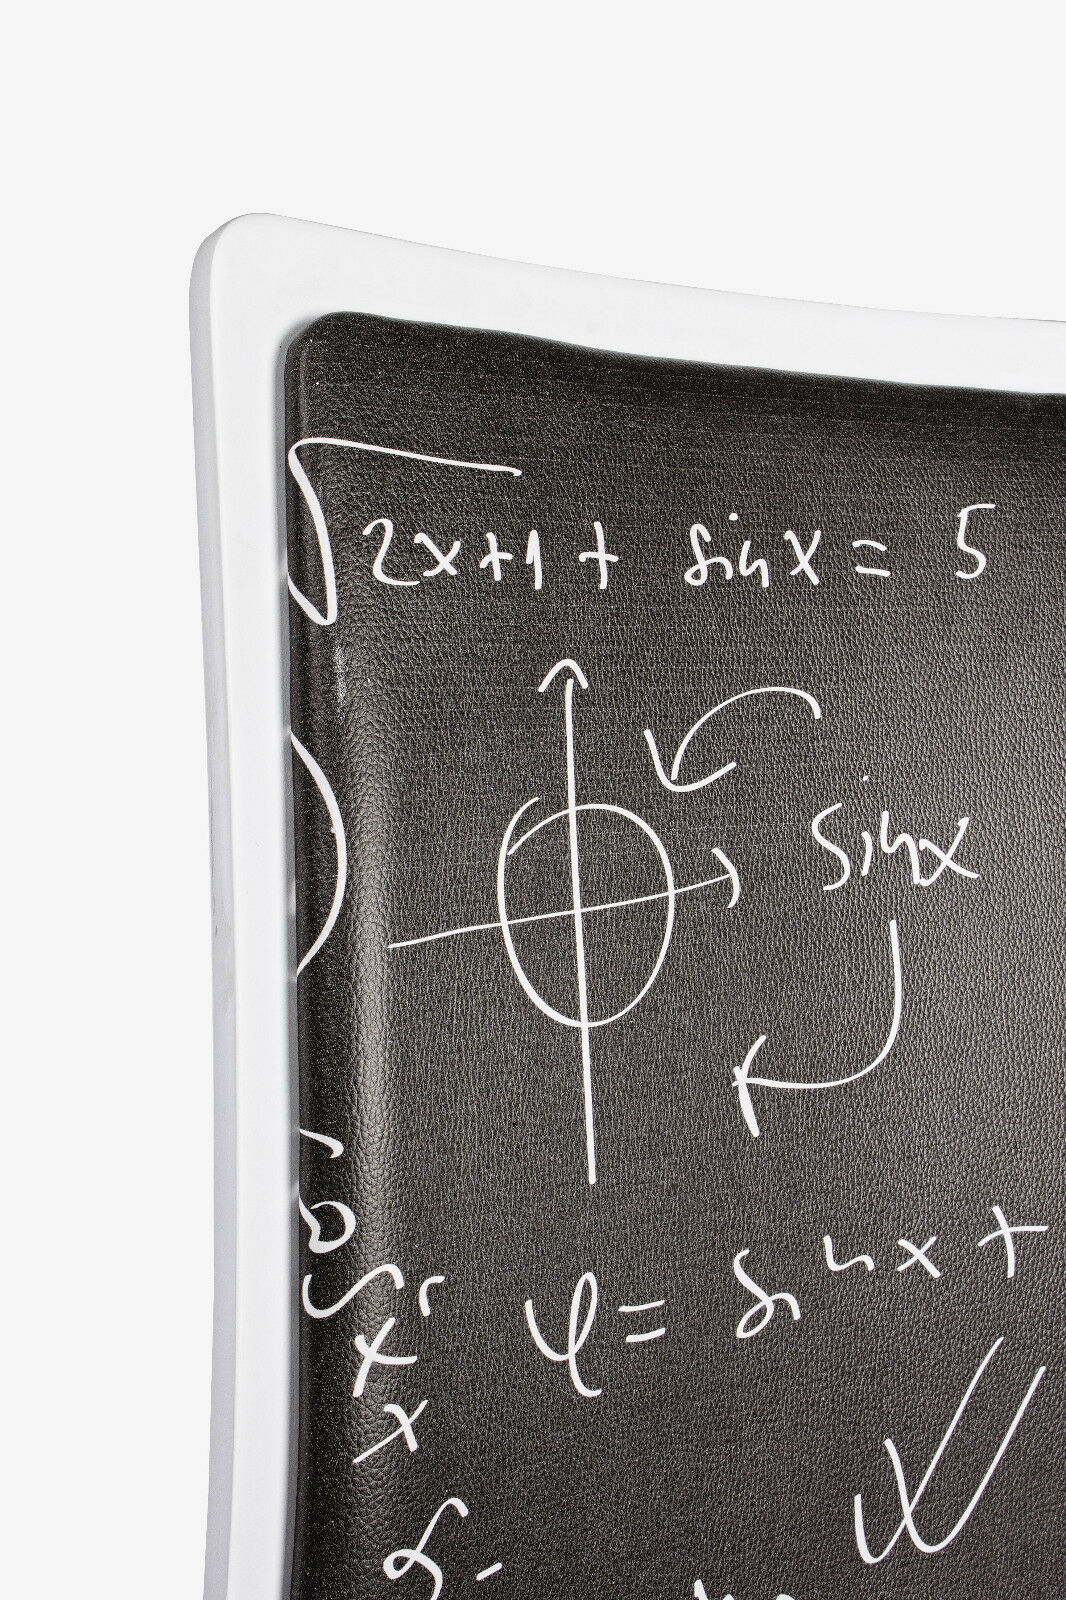 √2x+1 + sinx = 5
sinx
φ = sinx +
x
x